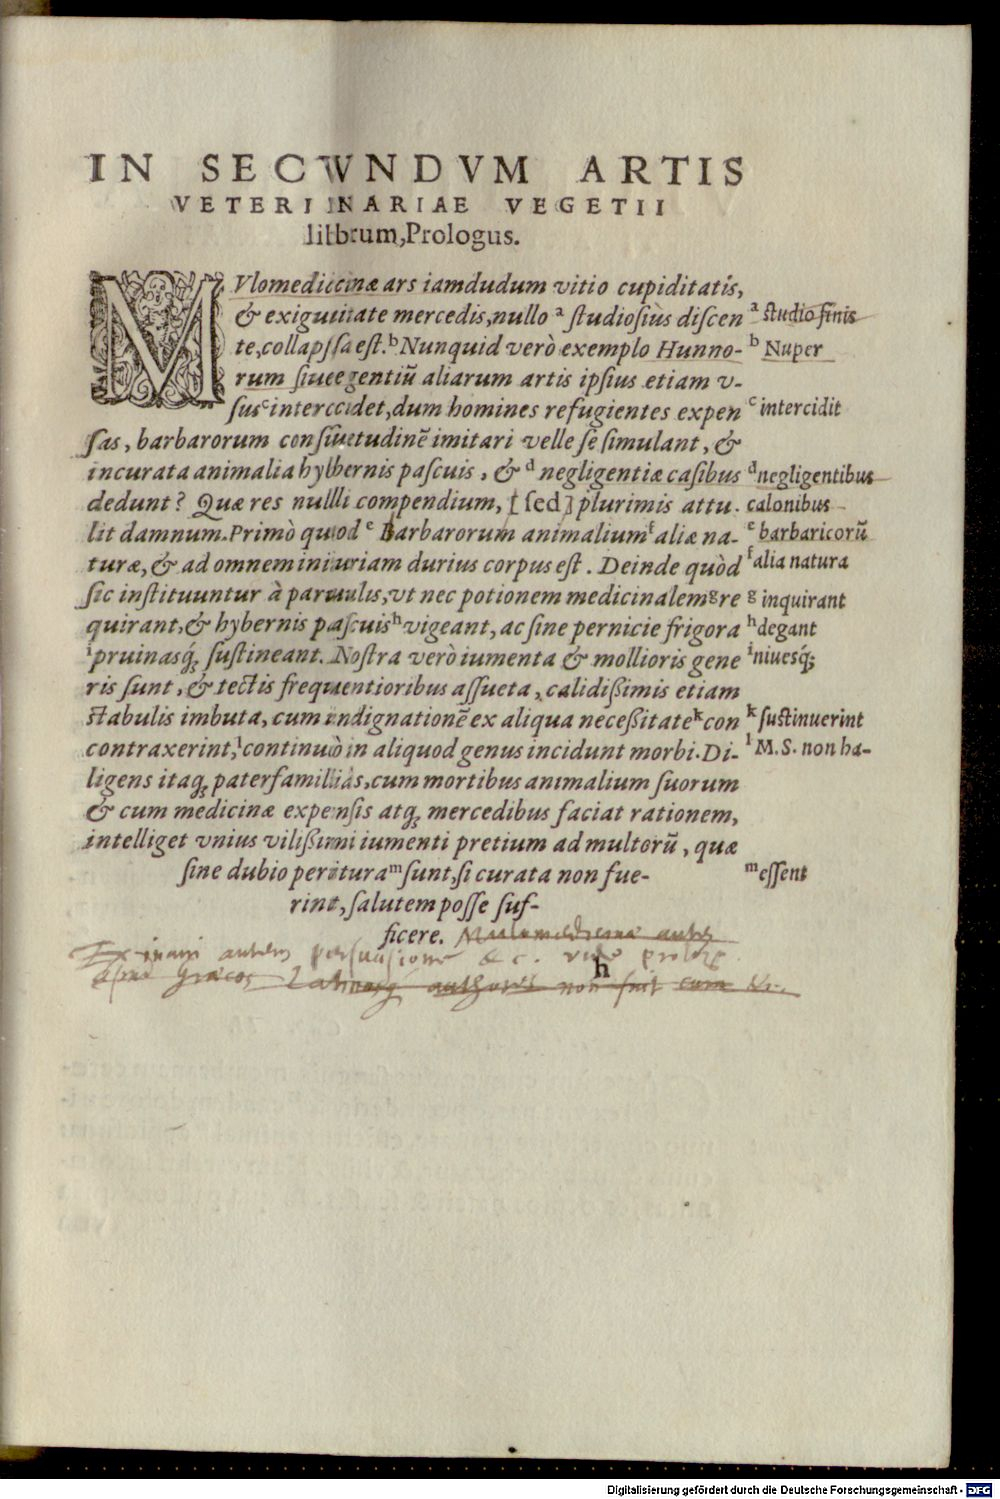 IN SECVNDVM ARTIS
VETERINARIAE VEGETII
librum, Prologus.
MVlomedicinæ ars iamdudum vitio cupiditatis,
& exiguitate mercedis, nullo ᵃ studiosiùs discen
te, collapsa est. ᵇ Nunquid verò exemplo Hunno-
rum siue gentiũ aliarum artis ipsius etiam v-
sus ᶜ intercidet, dum homines refugientes expen
sas, barbarorum consuetudinẽ imitari velle se simulant, &
incurata animalia hybernis pascuis, & ᵈ negligentiæ casibus
dedunt? Quæ res nulli compendium, [sed] plurimis attu.
lit damnum. Primò quod ᵉ Barbarorum animalium ᶠ aliæ na-
turæ, & ad omnem iniuriam durius corpus est. Deinde quòd
sic instituuntur à paruulis, vt nec potionem medicinalem ᵍ re
quirant, & hybernis pascuis ʰ vigeant, ac sine pernicie frigora
ⁱ pruinasq́; sustineant. Nostra verò iumenta & mollioris gene
ris sunt, & tectis frequentioribus assueta, calidißimis etiam
stabulis imbuta, cum indignationẽ ex aliqua neceßitate ᵏ con
contraxerint, ˡ continuò in aliquod genus incidunt morbi. Di-
ligens itaq; paterfamiliâs, cum mortibus animalium suorum
& cum medicinæ expensis atq; mercedibus faciat rationem,
intelliget vnius vilißimi iumenti pretium ad multorũ, quæ
sine dubio peritura ᵐ sunt, si curata non fue-
rint, salutem posse suf-
ficere. Mulomedicinæ autem
ᵃ studio finis
ᵇ Nuper
ᶜ intercidit
ᵈ negligentibus
calonibus
ᵉ barbaricorũ
ᶠ alia natura
ᵍ inquirant
ʰ degant
ⁱ niuesq́;
ᵏ sustinuerint
ˡ M.S. non ha-
ᵐ essent
autem persuasione &c. vide prolog.
apud Græcos Latinosq; authores non fuit cura &c.
h
Digitalisierung gefördert durch die Deutsche Forschungsgemeinschaft - DFG